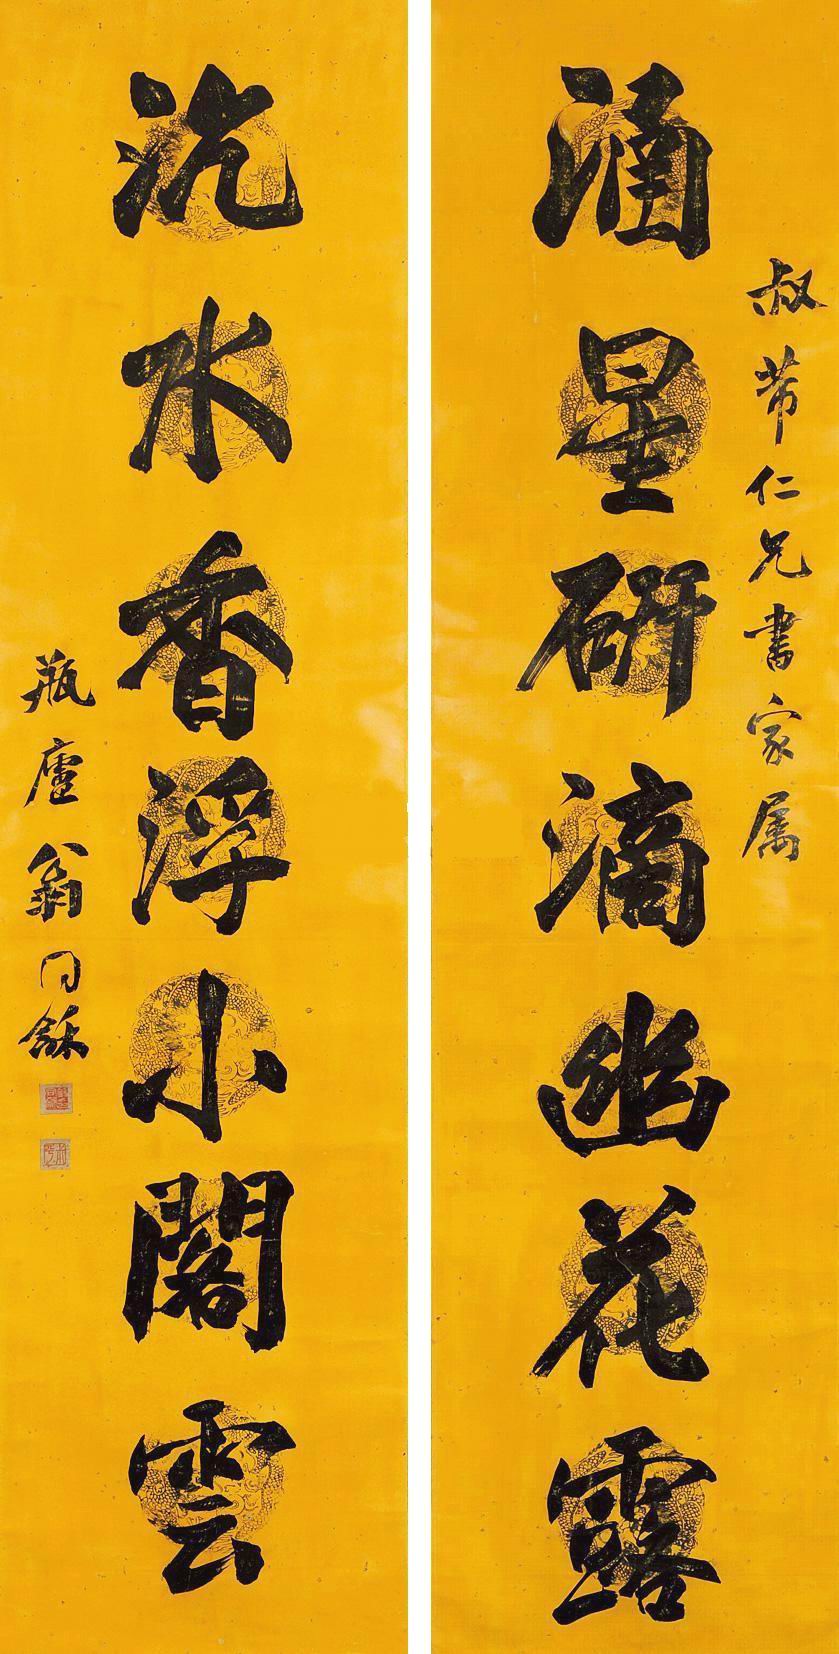 叔芾仁兄書家属
涵星研滴幽花露
沈水香浮小閣雲
瓶廬翁同龢